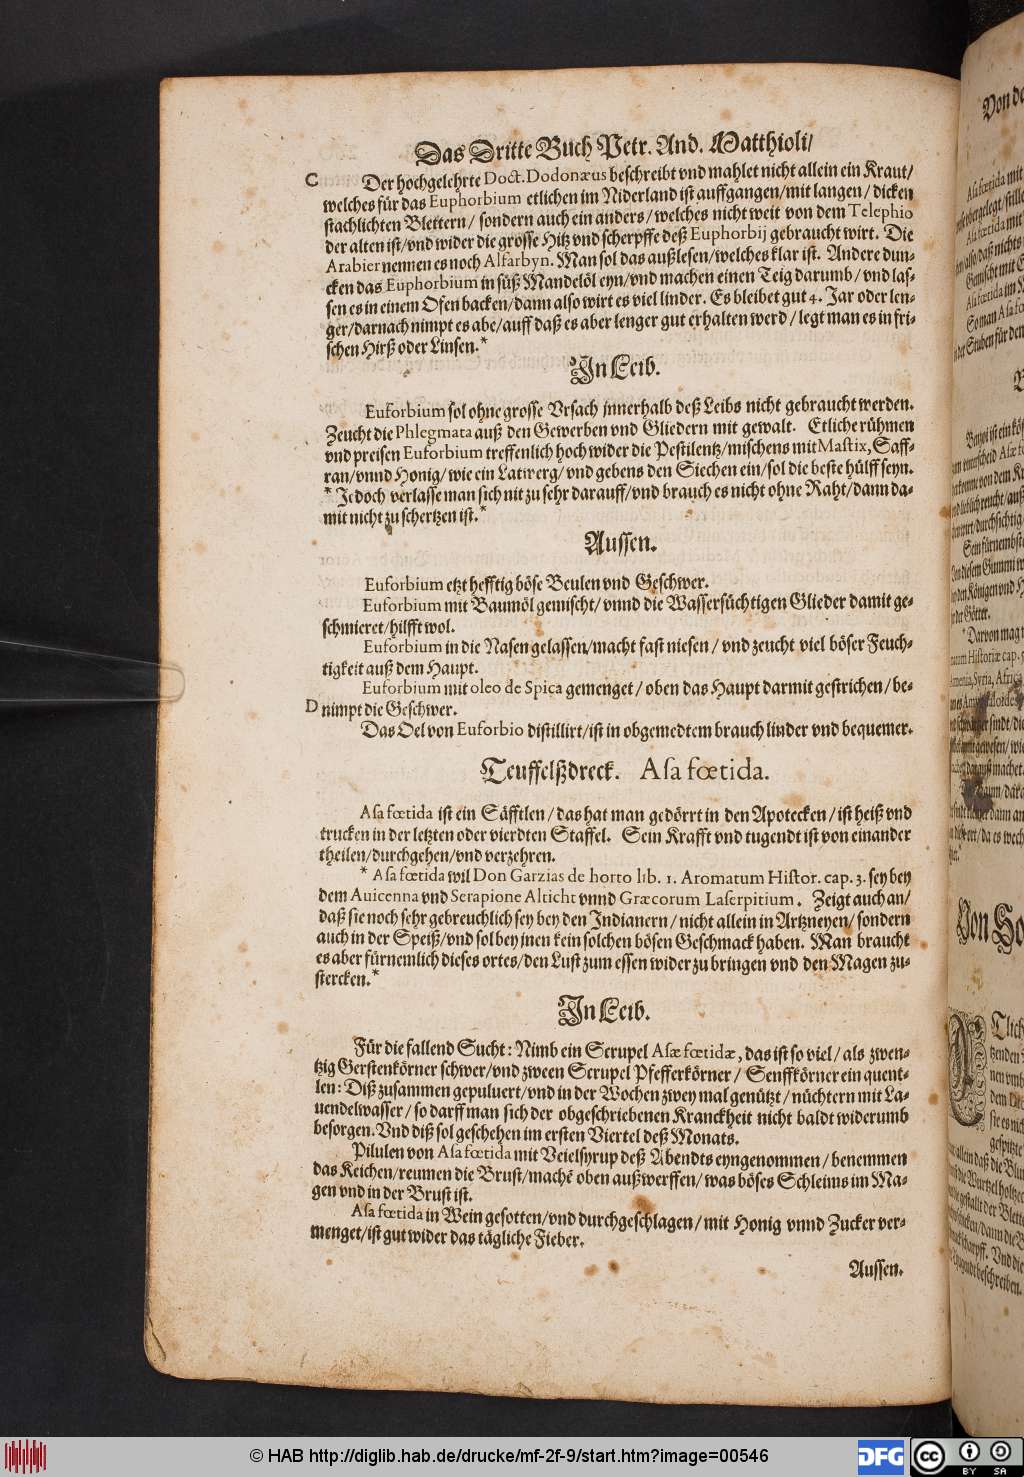 Das Dritte Buch Petr. And. Matthioli/
C Der hochgelehrte Doct. Dodonæus beschreibt vnd mahlet nicht allein ein Kraut/
welches für das Euphorbium etlichen im Niderland ist auffgangen/mit langen/ dicken
stachlichten Blettern/ sondern auch ein anders/ welches nicht weit von dem Telephio
der alten ist/vnd wider die grosse Hitz vnd scherpffe deß Euphorbij gebraucht wirt. Die
Arabier nennen es noch Alfarbyn. Man sol das außlesen/welches klar ist. Andere dun-
cken das Euphorbium in süß Mandelöl eyn/vnd machen einen Teig darumb/ vnd las-
sen es in einem Ofen backen/dann also wirt es viel linder. Es bleibet gut 4. Jar oder len-
ger/darnach nimpt es abe/auff daß es aber lenger gut erhalten werd/ legt man es in fri-
schen Hirß oder Linsen.*
In Leib.
Euforbium sol ohne grosse Vrsach innerhalb deß Leibs nicht gebraucht werden.
Zeucht die Phlegmata auß den Gewerben vnd Gliedern mit gewalt. Etliche rühmen
vnd preisen Euforbium treffenlich hoch wider die Pestilentz/mischens mit Mastix, Saff-
ran/vnnd Honig/ wie ein Latwerg/ vnd gebens den Siechen ein/sol die beste hülff seyn.
* Jedoch verlasse man sich nit zu sehr darauff/vnd brauch es nicht ohne Raht/dann da-
mit nicht zu schertzen ist.*
Aussen.
Euforbium etzt hefftig böse Beulen vnd Geschwer.
Euforbium mit Baumöl gemischt/ vnnd die Wassersüchtigen Glieder damit ge-
schmieret/hilfft wol.
Euforbium in die Nasen gelassen/macht fast niesen/ vnd zeucht viel böser Feuch-
tigkeit auß dem Haupt.
Euforbium mit oleo de Spica gemenget/ oben das Haupt darmit gestrichen/ be-
D nimpt die Geschwer.
Das Oel von Euforbio distillirt/ist in obgemeldtem brauch linder vnd bequemer.
Teuffelßdreck. Asa fœtida.
Asa fœtida ist ein Säfftlen/ das hat man gedörrt in den Apotecken/ ist heiß vnd
trucken in der letzten oder vierdten Staffel. Sein Krafft vnd tugendt ist von einander
theilen/durchgehen/vnd verzehren.
* Asa fœtida wil Don Garzias de horto lib. 1. Aromatum Histor. cap. 3. sey bey
dem Auicenna vnd Serapione Alticht vnnd Græcorum Laserpitium. Zeigt auch an/
daß sie noch sehr gebreuchlich sey bey den Indianern/ nicht allein in Artzneyen/ sondern
auch in der Speiß/vnd sol bey jnen kein solchen bösen Geschmack haben. Man braucht
es aber fürnemlich dieses ortes/den Lust zum essen wider zu bringen vnd den Magen zu-
stercken.*
In Leib.
Für die fallend Sucht: Nimb ein Scrupel Asæ fœtidæ, das ist so viel/ als zwen-
tzig Gerstenkörner schwer/vnd zween Scrupel Pfefferkörner/ Senffkörner ein quent-
len: Diß zusammen gepuluert/vnd in der Wochen zwey mal genützt/ nüchtern mit La-
uendelwasser/ so darff man sich der obgeschriebenen Kranckheit nicht baldt widerumb
besorgen. Vnd diß sol geschehen im ersten Viertel deß Monats.
Pilulen von Asa fœtida mit Veielsyrup deß Abendts eyngenommen/ benemmen
das Keichen/reumen die Brust/machẽ oben außwerffen/ was böses Schleims im Ma-
gen vnd in der Brust ist.
Asa fœtida in Wein gesotten/vnd durchgeschlagen/ mit Honig vnnd Zucker ver-
menget/ist gut wider das tägliche Fieber.
Aussen.
© HAB http://diglib.hab.de/drucke/mf-2f-9/start.htm?image=00546
DFG
cc BY SA